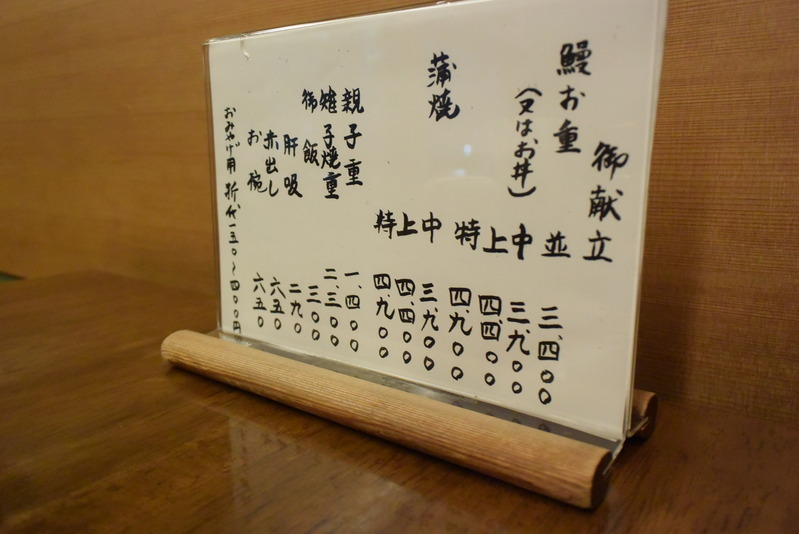 御献立
鰻お重 並 三、四〇〇
(又はお丼) 中 三、九〇〇
上 四、四〇〇
特 四、九〇〇
蒲焼 中 三、九〇〇
上 四、四〇〇
特 四、九〇〇
親子重 一、四〇〇
雉子焼重 二、三〇〇
御飯 三〇〇
肝吸 二九〇
赤出し 六五〇
お椀 六五〇
おみやげ用 折代 一五〇〜四〇〇円